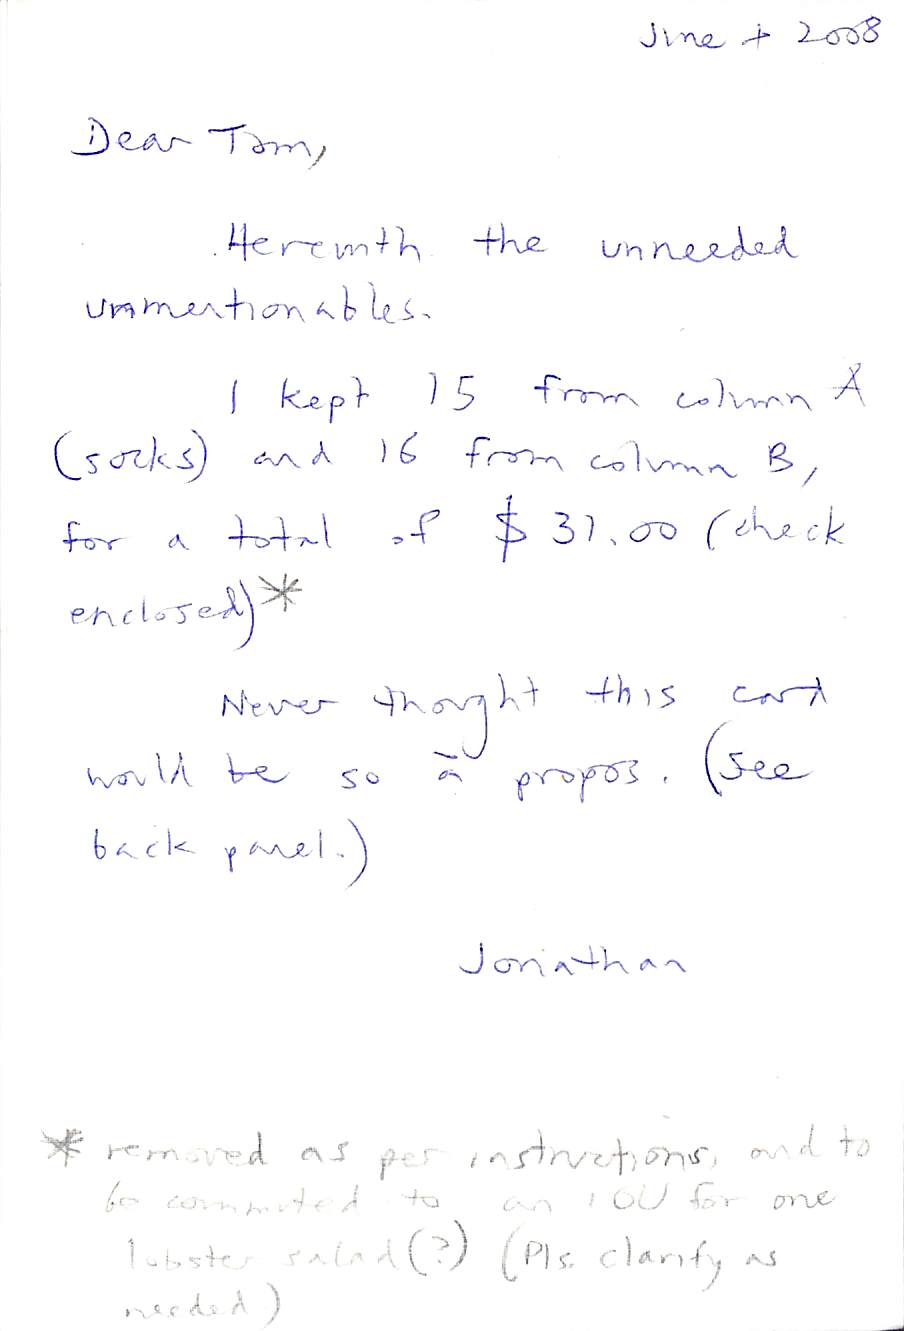 June + 2008
Dear Tom,
Herewith the unneeded
unmentionables.
I kept 15 from column A
(socks) and 16 from column B,
for a total of $31.00 (check
enclosed)*
Never thought this card
would be so à propos. (See
back panel.)
Jonathan
* removed as per instructions, and to
be commuted to an IOU for one
lobster salad(?) (Pls. clarify as
needed)